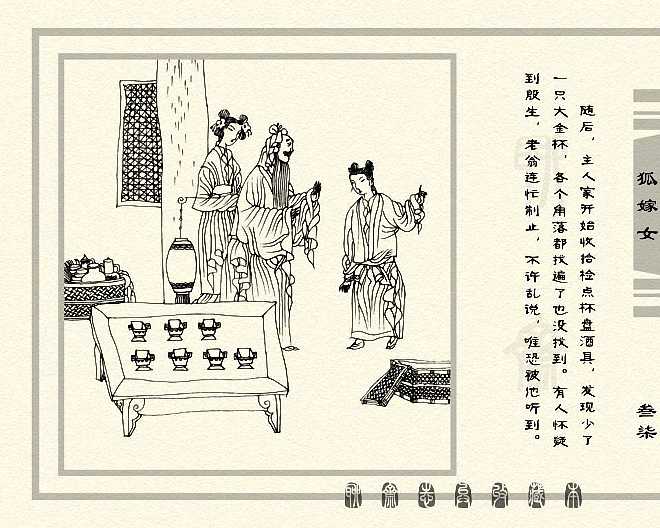 狐嫁女
叁柒
随后，主人家开始收拾检点杯盘酒具，发现少了
一只大金杯，各个角落都找遍了也没找到。有人怀疑
到殷生，老翁连忙制止，不许乱说，唯恐被他听到。
聊斋志异收藏本